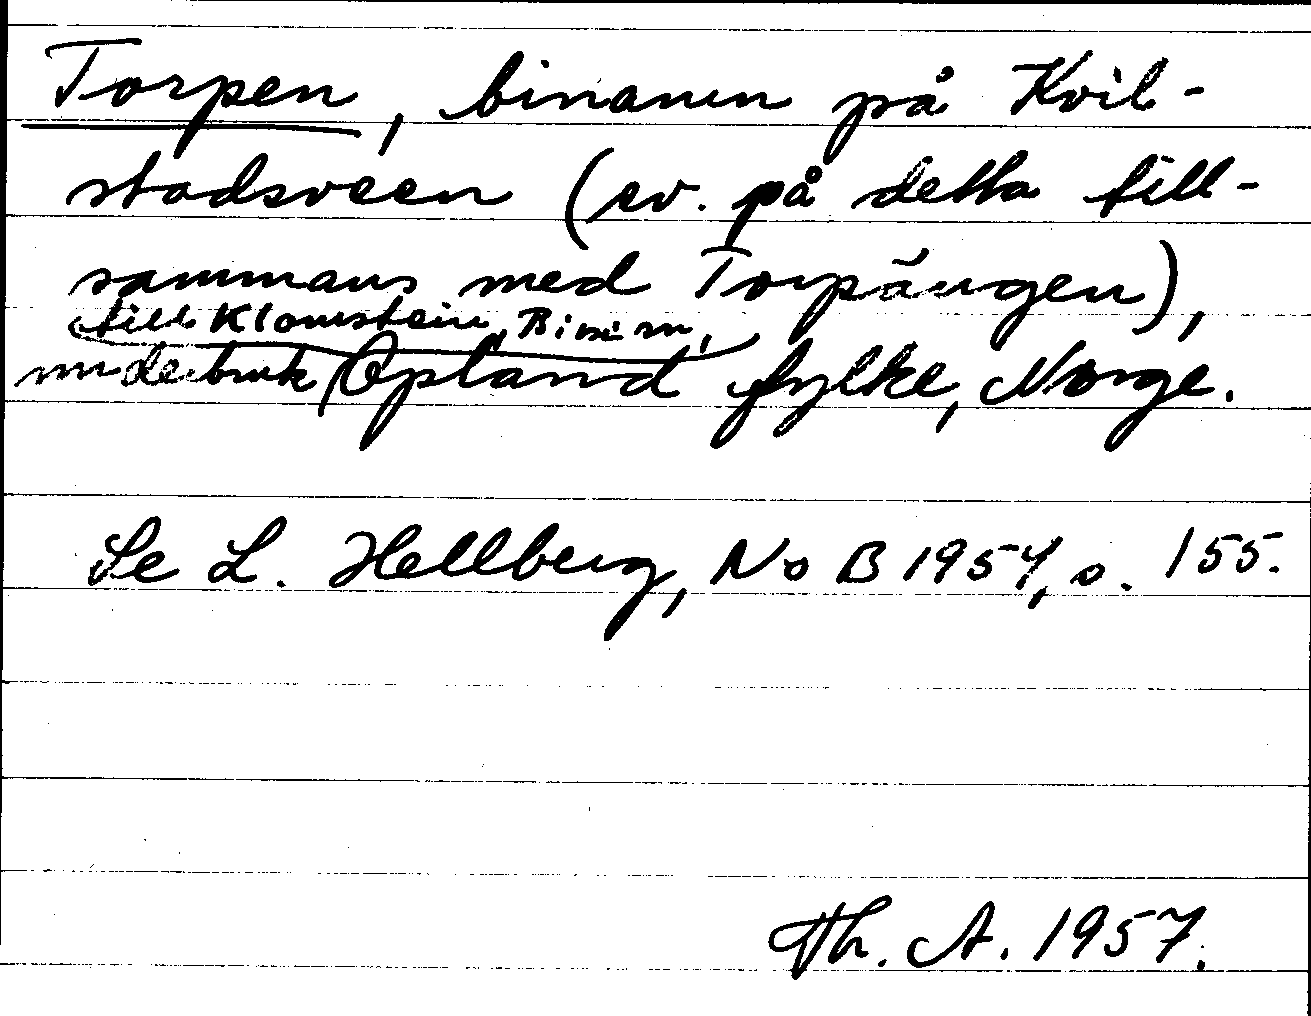 Torpen, binamn på Kvil-
stadsveen (ev. på detta till-
sammans med Torpängen),
till Klomstein, Biri sn,
underbruk Opland fylke, Norge.
Se L. Hellberg, NoB 1954, s. 155.
Th. A. 1957.